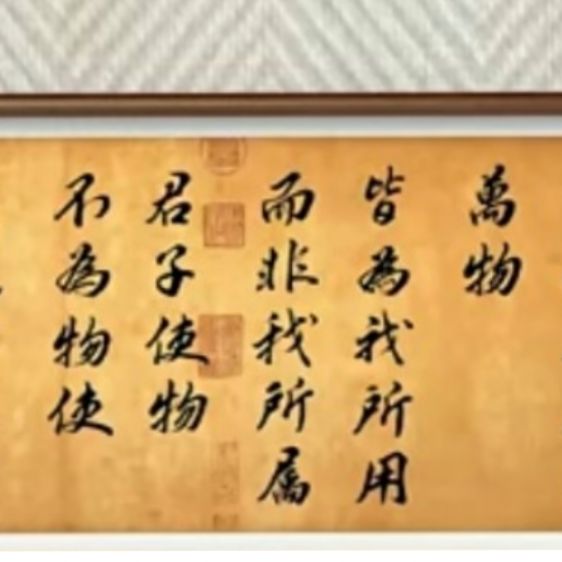 萬物
皆為我所用
而非我所属
君子使物
不為物使